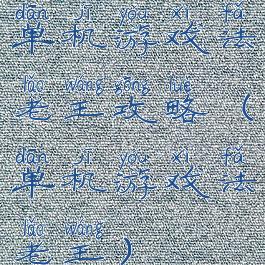 dān jī yóu xì fǎ
单机游戏法
lǎo wáng gōng lüè
老王攻略（
dān jī yóu xì fǎ
单机游戏法
lǎo wáng
老王）